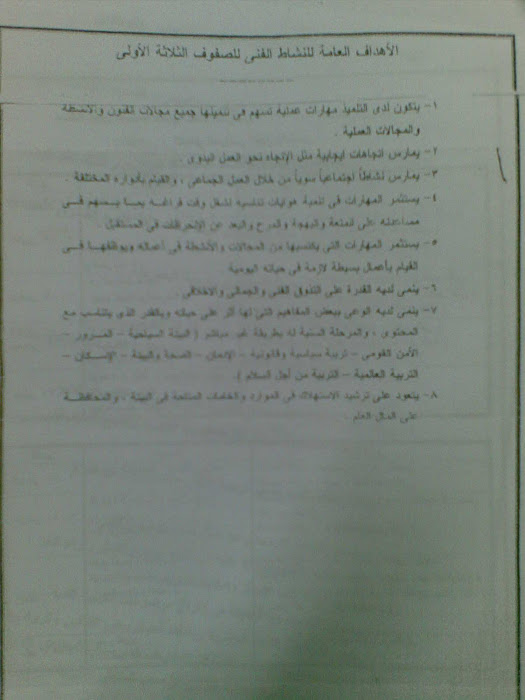 الأهداف العامة للنشاط الفنى للصفوف الثلاثة الأولى
١- يتكون لدى التلميذ مهارات عملية تسهم فى تنميتها جميع مجالات الفنون والأنشطة
والمجالات العملية .
٢- يمارس اتجاهات ايجابية مثل الإتجاه نحو العمل اليدوى .
٣- يمارس نشاطاً اجتماعياً سوياً من خلال العمل الجماعى ، والقيام بأدواره المختلفة .
٤- يستثمر المهارات فى تنمية هوايات تناسبه لشغل وقت فراغه بما يسهم فى
مساعدته على المتعة والبهجة والمرح والبعد عن الإنحرافات فى المستقبل .
٥- يستثمر المهارات التى يكتسبها من المجالات والأنشطة فى أعماله ويوظفها فى
القيام بأعمال بسيطة لازمة فى حياته اليومية
٦- ينمى لديه القدرة على التذوق الفنى والجمالى والاخلاقى .
٧- ينمى لديه الوعى ببعض المفاهيم التى لها أثر على حياته وبالقدر الذى يتناسب مع
المحتوى ، والمرحلة السنية له بطريقة غير مباشر ( البيئة السياحية - المرور -
الأمن القومى - تربية سياسية وقانونية - الإدمان - الصحة والبيئة - الإسكان -
التربية العالمية - التربية من أجل السلام ) .
٨- يتعود على ترشيد الاستهلاك فى الموارد والخامات المتاحة فى البيئة ، والمحافظة
على المال العام .